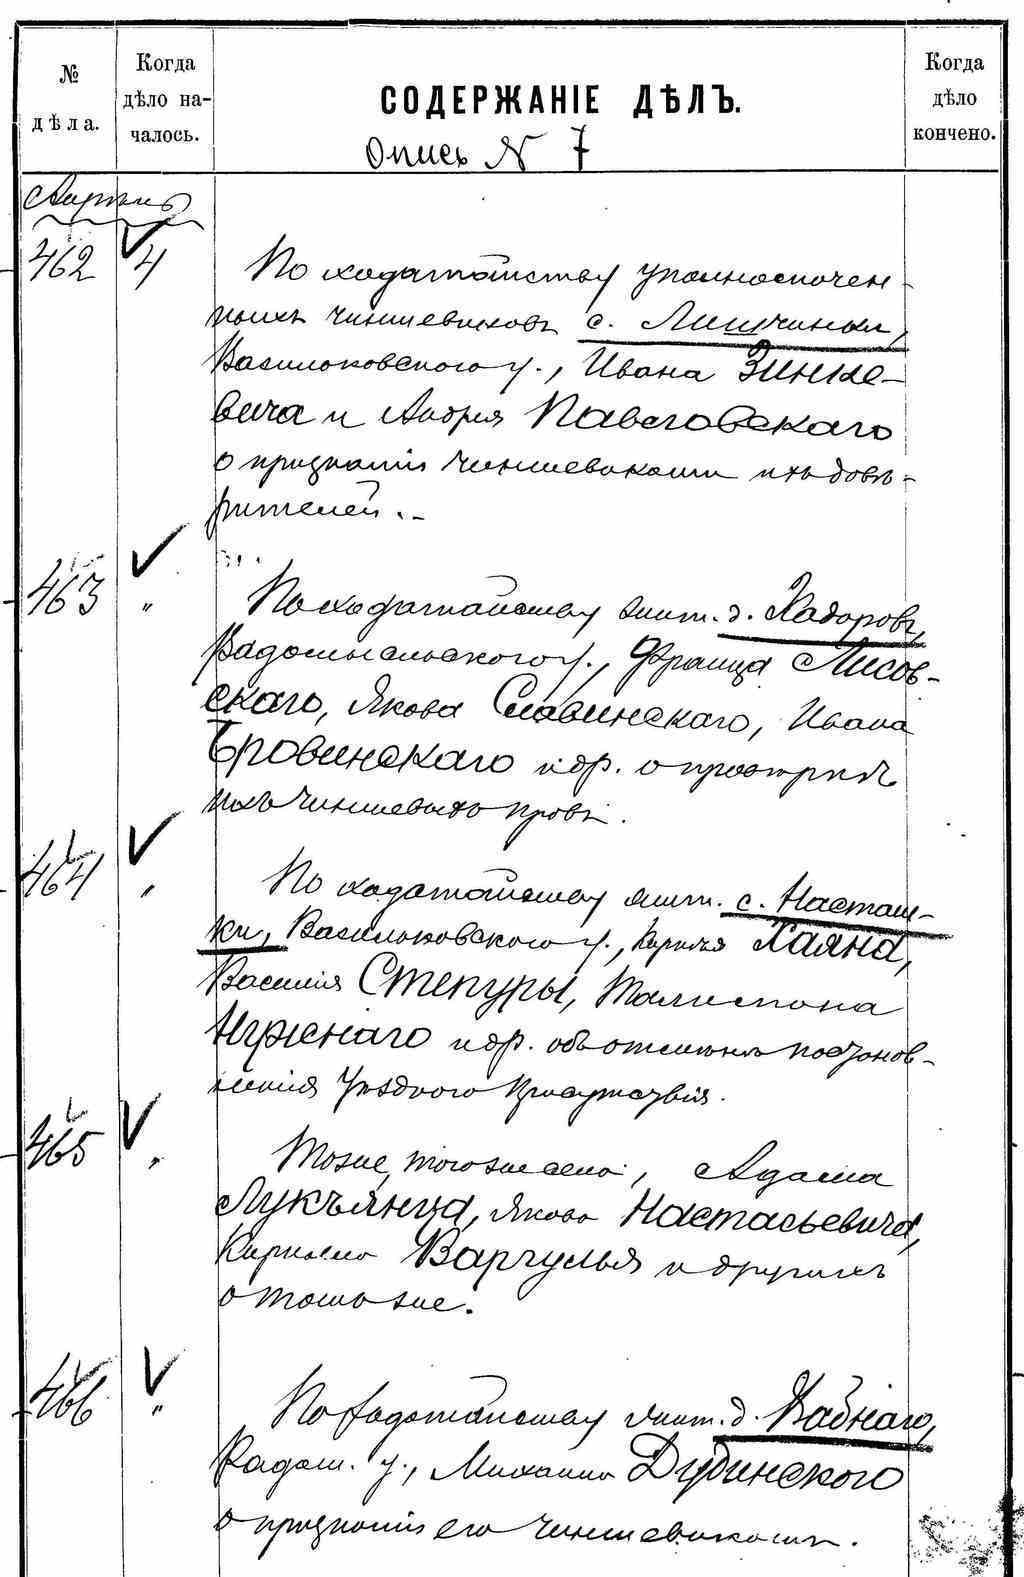 № дѣла.
Когда дѣло на-
чалось.
СОДЕРЖАНІЕ ДѢЛЪ.
Когда дѣло кончено.
Опись N 7
Апрѣль
462 4 По ходатайству уполномочен-
ныхъ чиншевиковъ с.
Васильковскаго у., Ивана Зинке-
вича и Андрея Павловскаго
о признаніи чиншевиками ихъ довѣ-
рителей.
463 " По ходатайству жит. д. Хадоровъ,
Радомысльскаго у., Франца Лисов-
скаго, Якова Славинскаго, Ивана
Бровинскаго и др. о
ихъ чиншевыхъ правъ.
464 " По ходатайству жит. с. Насташ-
ки, Васильковскаго у., Кирила Хаяна,
Василія Степуры, Филимона
и др. объ отмѣнѣ постанов-
ленія Уѣзднаго Присутствія.
465 " Тоже, того же села, Адама
Лукъянца, Якова Настасьевича,
Варгулья и другихъ
о томъ же.
466 " По ходатайству жит. д.
Радом. у., Михаила Дубинского
о признаніи его чиншевикомъ.